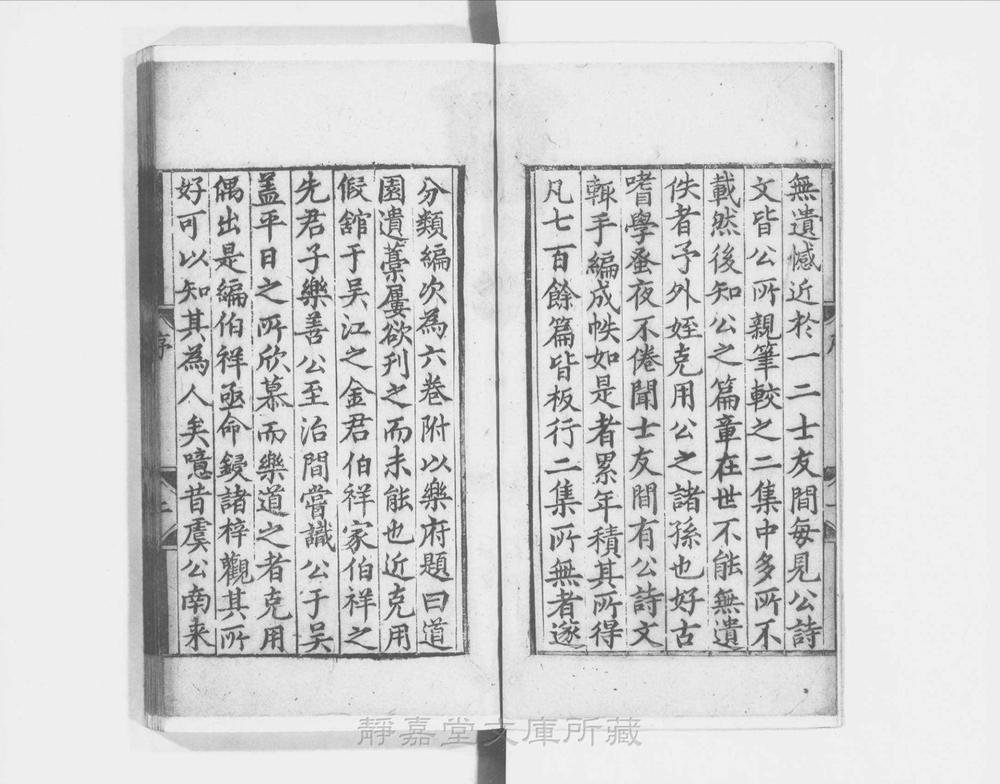 無遺憾近扵一二士友間每見公詩
文皆公所親筆較之二集中多所不
載然後知公之篇章在世不能無遺
佚者予外姪克用公之諸孫也好古
嗜學蚤夜不倦聞士友間有公詩文
輙手編成帙如是者累年積其所得
凡七百餘篇皆板行二集所無者遂
分類編次為六卷附以樂府題曰道
園遺藁屢欲刋之而未能也近克用
假舘于吴江之金君伯祥家伯祥之
先君子樂善公至治間嘗識公于吴
盖平日之所欣慕而樂道之者克用
偶出是編伯祥亟命鋟諸梓觀其所
好可以知其為人矣噫昔虞公南来
序
靜嘉堂文庫所藏